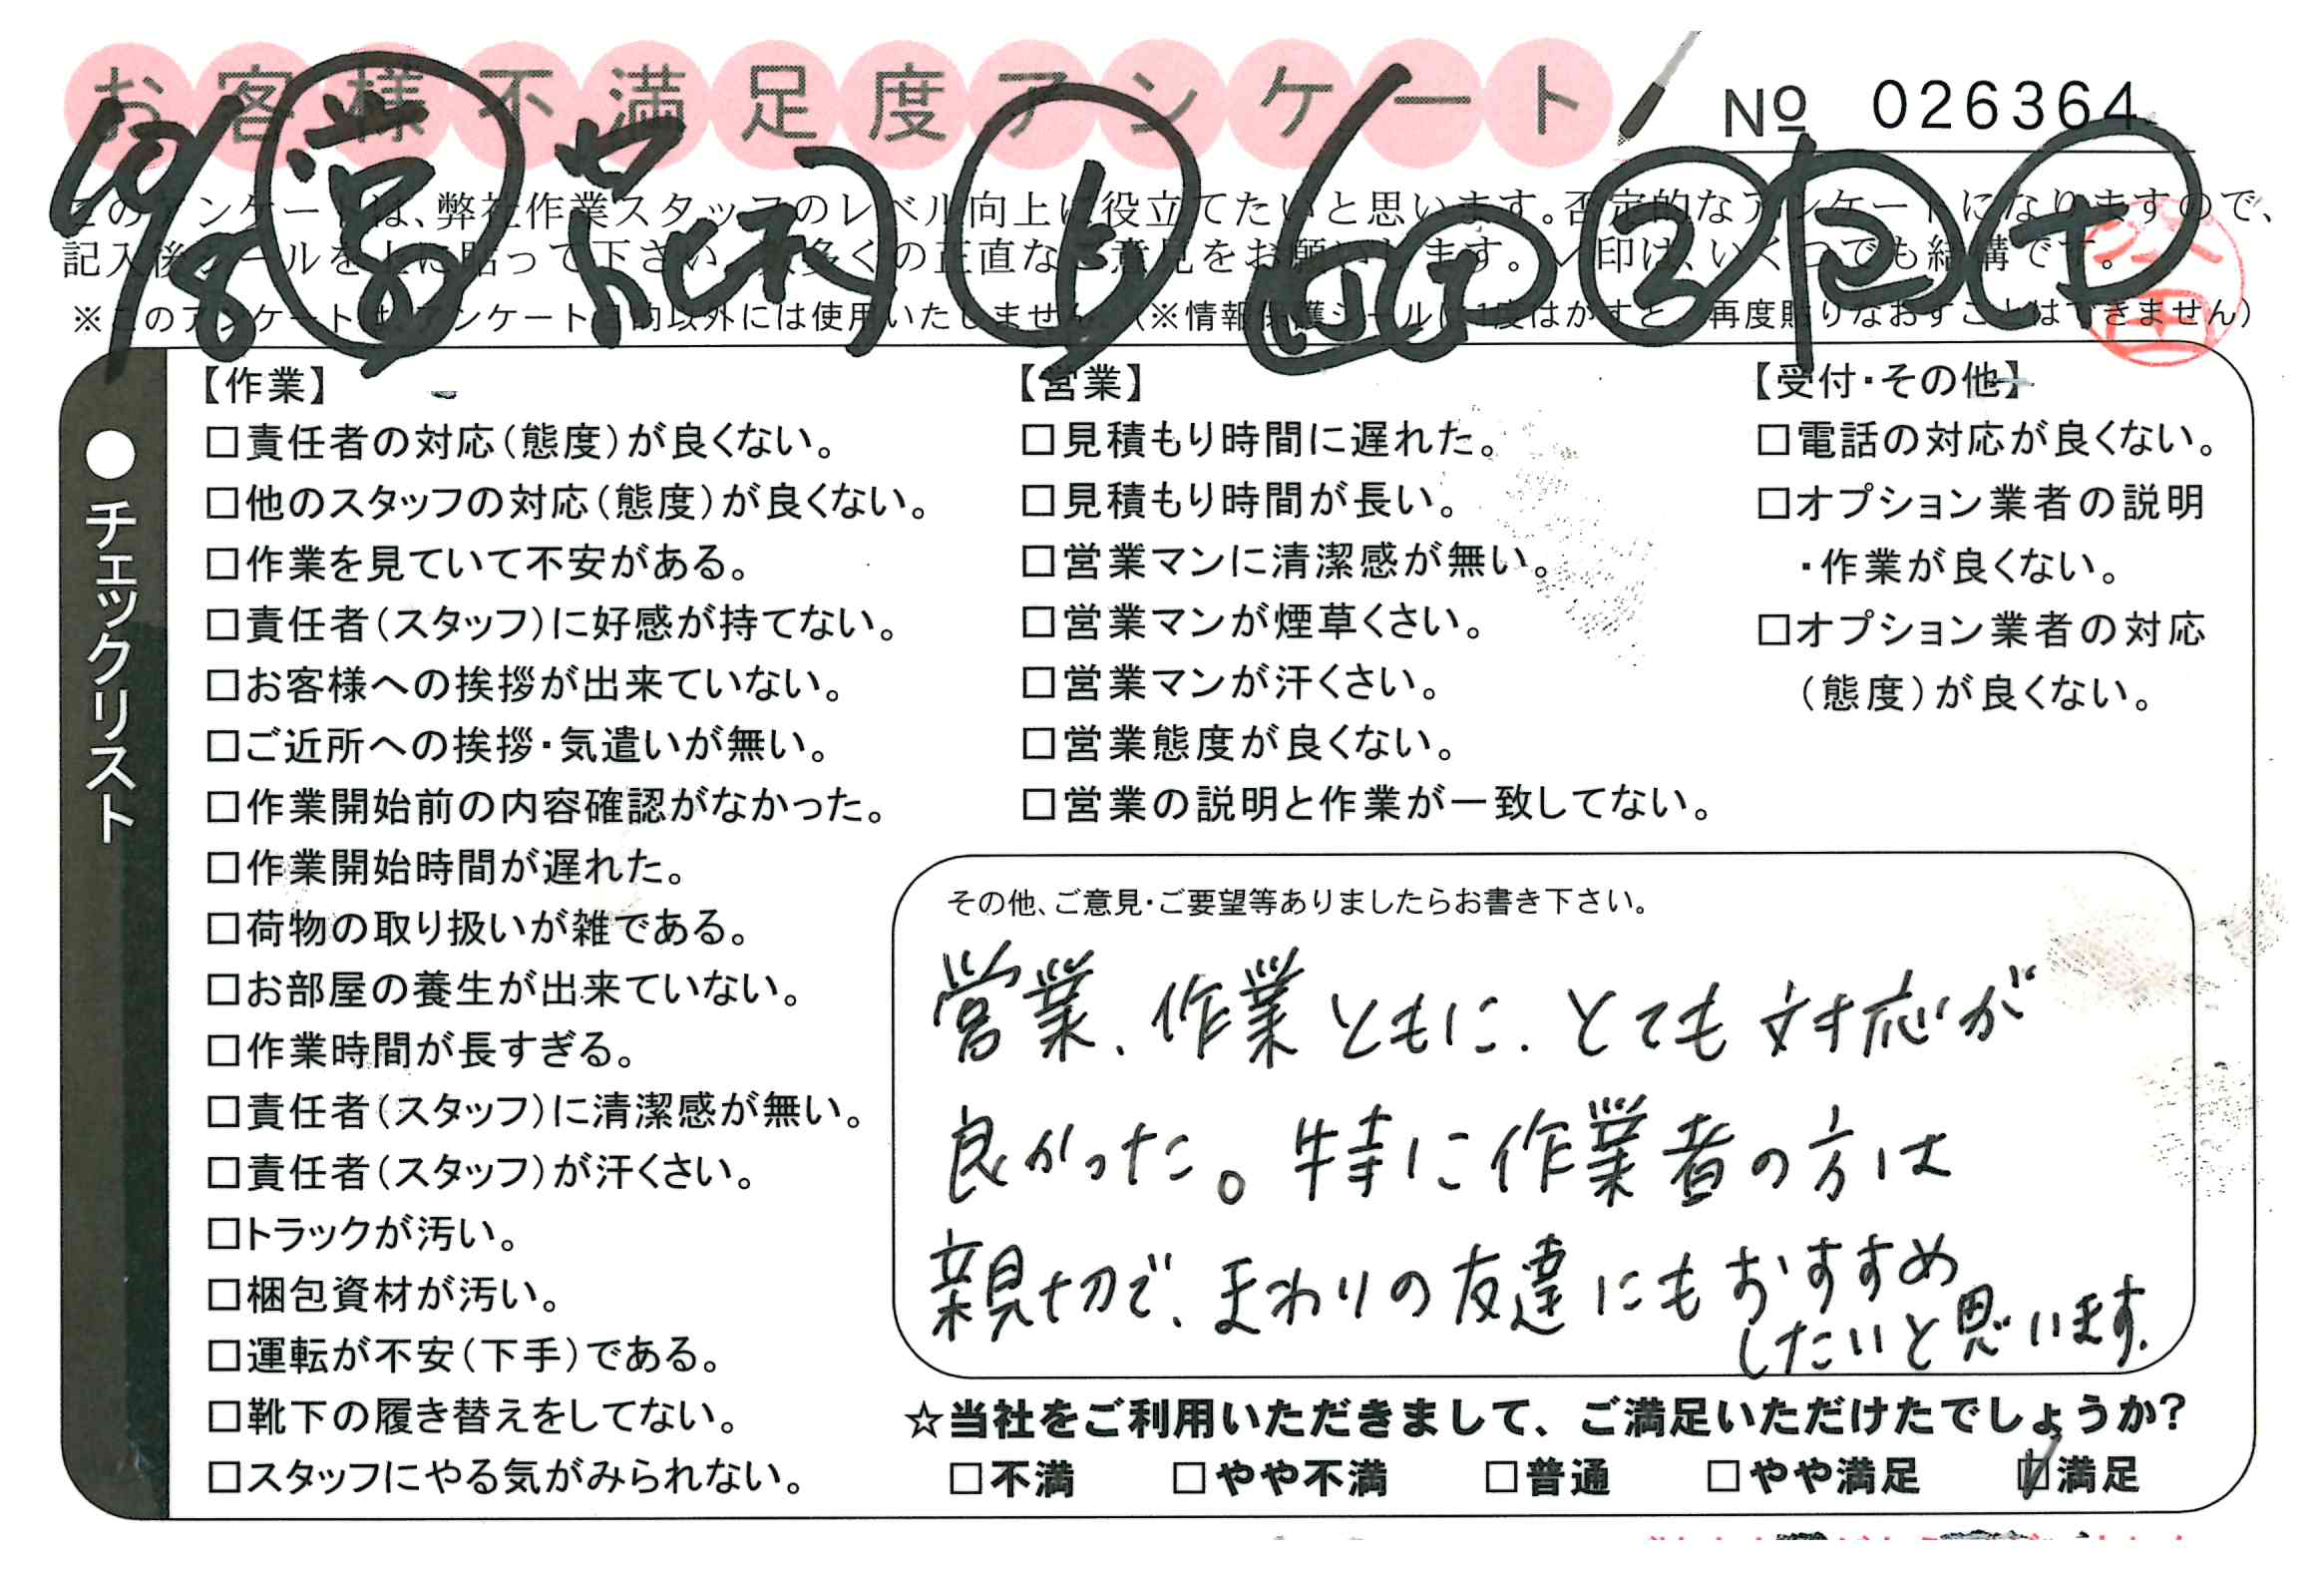 お客様不満足度アンケート
Nº 026364
このアンケートは、弊社作業スタッフのレベル向上に役立てたいと思います。否定的なアンケートになりますので、
記入後シールを上に貼って下さい。数多くの正直なご意見をお願いします。✓印は、いくつでも結構です。
※このアンケートは、アンケート目的以外には使用いたしません。(※情報保護シールは1度はがすと、再度貼りなおすことはできません)
10/8 営
●チェックリスト
【作業】
□責任者の対応(態度)が良くない。
□他のスタッフの対応(態度)が良くない。
□作業を見ていて不安がある。
□責任者(スタッフ)に好感が持てない。
□お客様への挨拶が出来ていない。
□ご近所への挨拶・気遣いが無い。
□作業開始前の内容確認がなかった。
□作業開始時間が遅れた。
□荷物の取り扱いが雑である。
□お部屋の養生が出来ていない。
□作業時間が長すぎる。
□責任者(スタッフ)に清潔感が無い。
□責任者(スタッフ)が汗くさい。
□トラックが汚い。
□梱包資材が汚い。
□運転が不安(下手)である。
□靴下の履き替えをしてない。
□スタッフにやる気がみられない。
【営業】
□見積もり時間に遅れた。
□見積もり時間が長い。
□営業マンに清潔感が無い。
□営業マンが煙草くさい。
□営業マンが汗くさい。
□営業態度が良くない。
□営業の説明と作業が一致してない。
【受付・その他】
□電話の対応が良くない。
□オプション業者の説明
・作業が良くない。
□オプション業者の対応
(態度)が良くない。
その他、ご意見・ご要望等ありましたらお書き下さい。
営業、作業ともに、とても対応が
良かった。特に作業者の方は
親切で、まわりの友達にもおすすめ
したいと思います。
☆当社をご利用いただきまして、ご満足いただけたでしょうか?
□不満 □やや不満 □普通 □やや満足 ☑満足